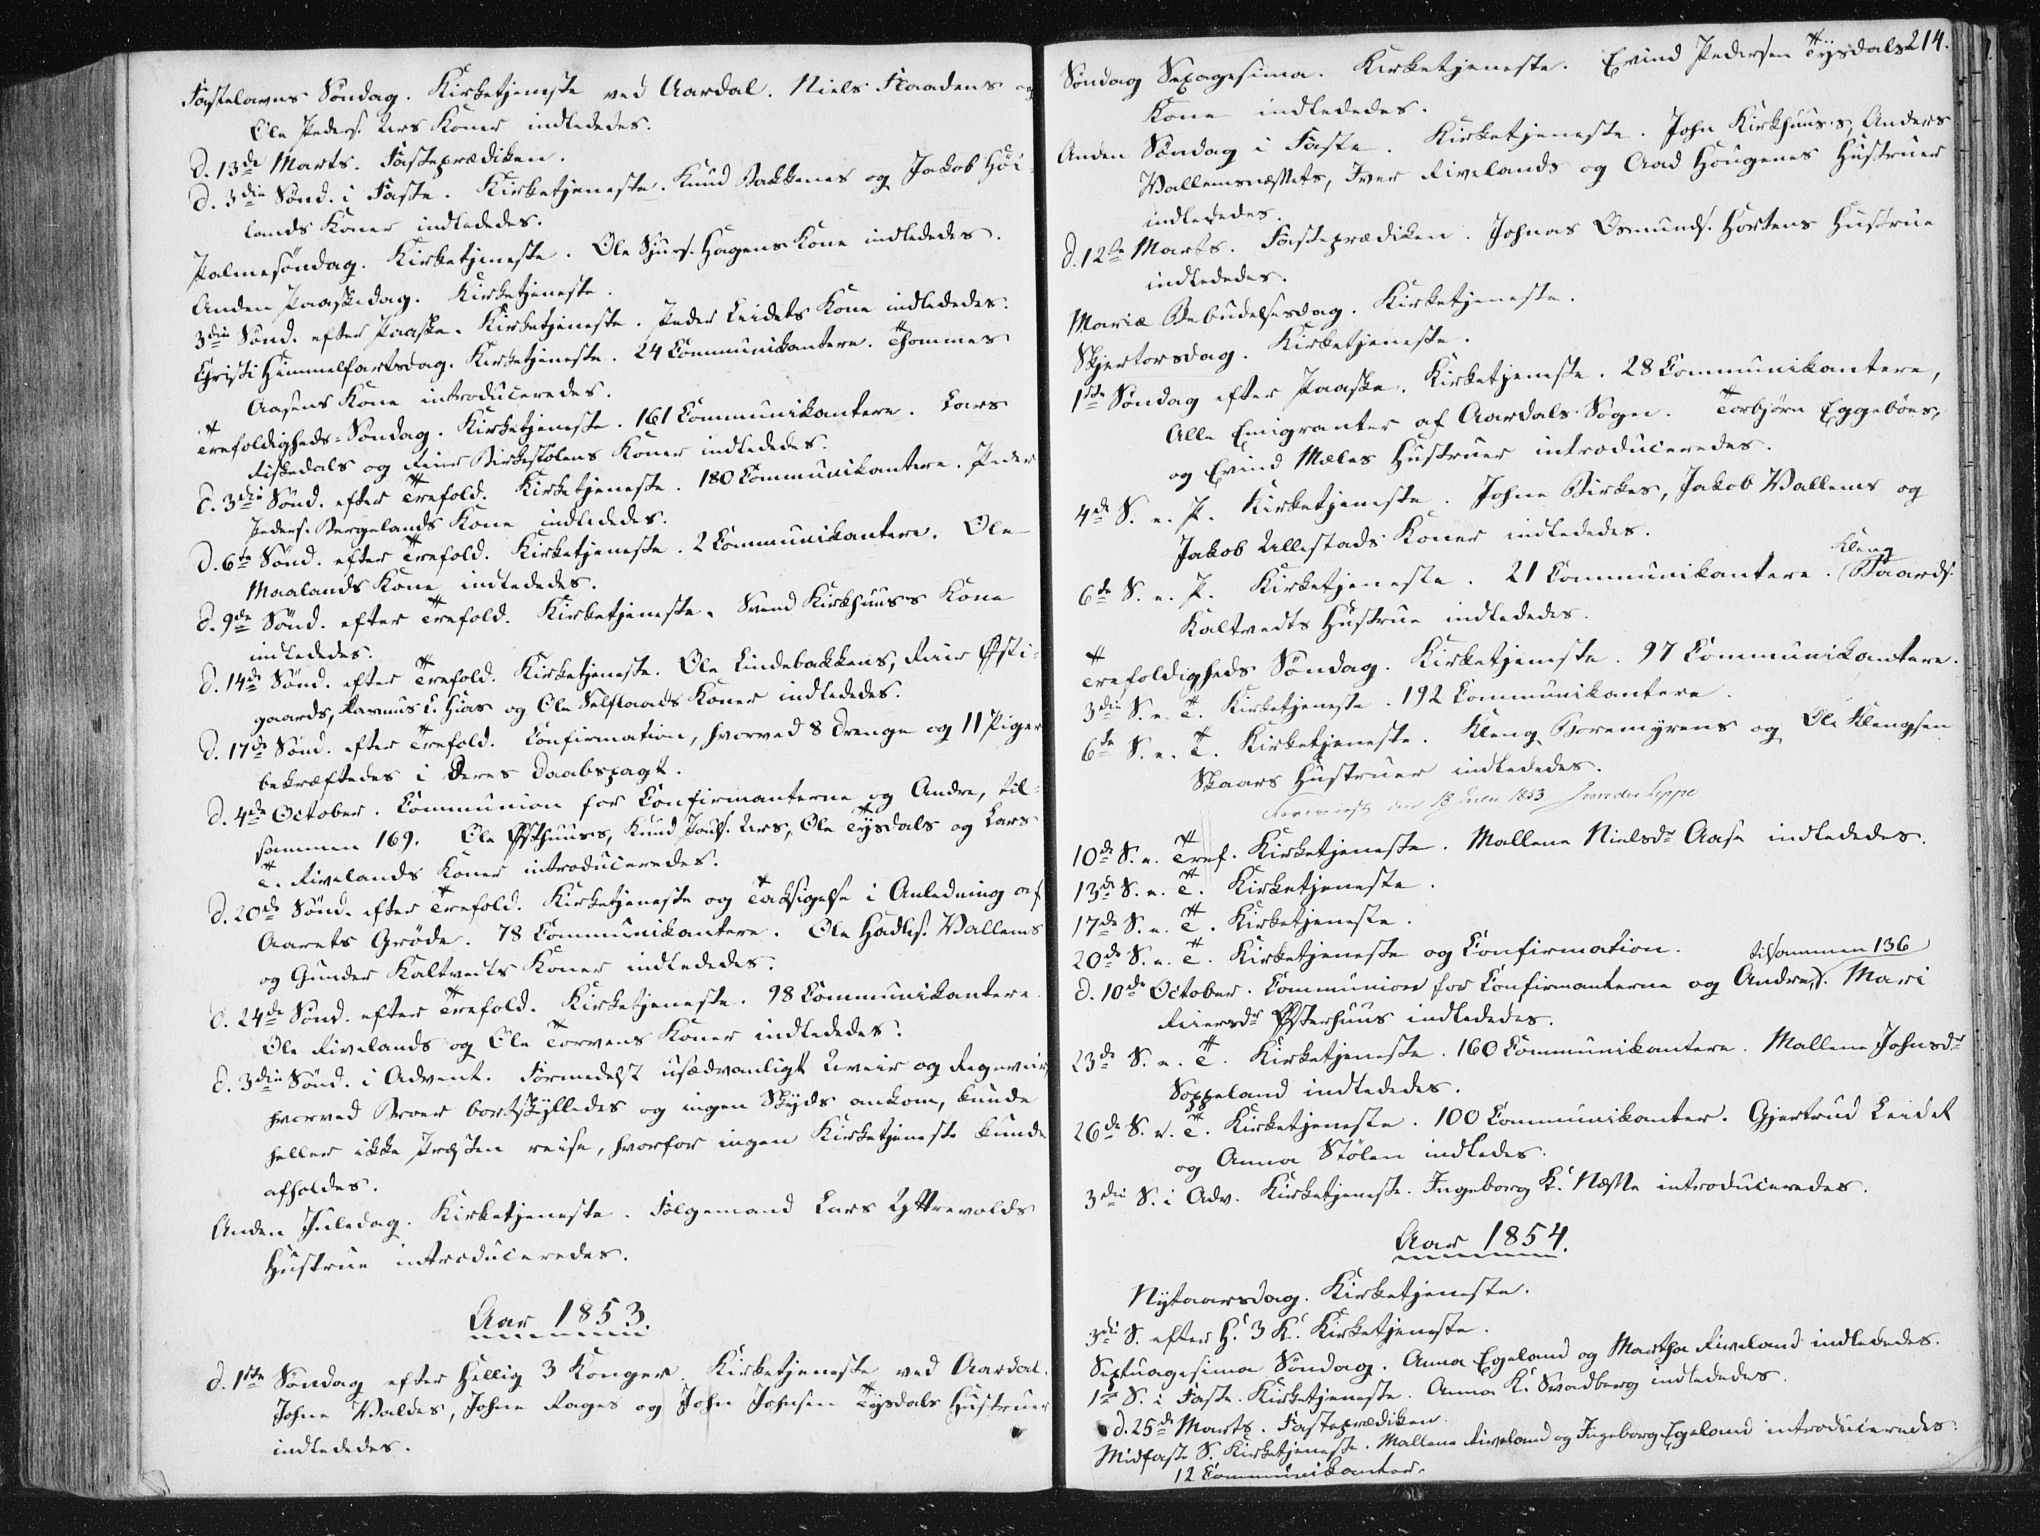 Fastelavns Söndag. Kirketjeneste ved Aardal. Niels Flaadens og
Ole Peders. Urs Koner indlededes.
D. 13de Marts. Fasteprædiken.
D. 3die Sönd. i Faste. Kirketjeneste. Knud Bakkenes og Jakob Höi-
lands Koner indlededes.
Palmesöndag. Kirketjeneste. Ole Sjurs. Hagens Kone indlededes.
Anden Paaskedag. Kirketjeneste.
3die Sönd. efter Paaske. Kirketjeneste. Peder Leidets Kone indlededes.
Christi Himmelfartsdag. Kirketjeneste. 24 Communikantere. Thommes
Aasens Kone introduceredes.
Trefoldigheds-Söndag. Kirketjeneste. 161 Communikantere. Lars
Fiskedals og Reier Birkestölens Koner indlededes.
D. 3die Sönd. efter Trefold. Kirketjeneste. 180 Communikantere. Peder
Peders. Bergelands Kone indlededes.
D. 6te Sönd. efter Trefold. Kirketjeneste. 2 Communikantere. Ole
Maalands Kone indlededes.
D. 9de Sönd. efter Trefold. Kirketjeneste. Svend Kirkhuus's Kone
indlededes.
D. 14de Sönd. efter Trefold. Kirketjeneste. Ole Lindebakkens, Reier Østi-
gaards, Rasmus L. Hias og Ole Selflaads Koner indlededes.
D. 17de Sönd. efter Trefold. Confirmation, hvorved 8 Drenge og 11 Piger
bekræftedes i deres Daabspagt.
D. 4de October. Communion for Confirmanterne og Andre, til-
sammen 169. Ole Østhuus's, Knud Urs, Ole Tysdals og Lars
T. Rivelands Koner introduceredes.
D. 20de Sönd. efter Trefold. Kirketjeneste og Taksigelse i Anledning af
Aarets Gröde. 78 Communikantere. Ole Hadles. Vallems
og Gunder Kaltvedts Koner indlededes.
D. 24de Sönd. efter Trefold. Kirketjeneste. 98 Communikantere.
Ole Rivelands og Ole Torvens Koner indlededes.
D. 3die Sönd. i Advent. Formedelst usædvanligt Uveir og Regnveir,
hvorved Broer bortskylledes og ingen Skyds ankom, kunde
heller ikke Præsten reise, hvorfor ingen Kirketjeneste kunde
afholdes.
Anden Juledag. Kirketjeneste. Fölgemand Lars Yttrevolds
Hustrue introduceredes.
Aar 1853.
d. 1ste Söndag efter Hellig 3 Konger. Kirketjeneste ved Aardal.
Johne Valdes, Johne Rages og John Johnsen Tysdals Hustruer
indlededes.
214.
Söndag Sexagesima. Kirketjeneste. Evind Pedersen Tysdals
Kone indlededes.
Anden Söndag i Faste. Kirketjeneste. John Kirkhuus's, Anders
Vallemsnæssets, Iver Rivelands og Aad Hougenes Hustruer
indlededes.
D. 12te Marts. Fasteprædiken. Johnas Osmunds. Hortens Hustrue
indlededes.
Mariæ Bebudelsesdag. Kirketjeneste.
Skjertorsdag. Kirketjeneste.
1ste Söndag efter Paaske. Kirketjeneste. 28 Communikantere,
Alle Emigranter af Aardals Sogn. Torbjørn Eggeböes,
og Evind Mæles Hustruer introduceredes.
4de S. e. P. Kirketjeneste. Johne Birkes, Jakob Vallems og
Jakob Ullestads Koner indlededes.
6te S. e. P. Kirketjeneste. 21 Communikantere. Kleng Baards.
Kaltvedts Hustrue indlededes.
Trefoldigheds Söndag. Kirketjeneste. 97 Communikantere.
3die S. e. T. Kirketjeneste. 192 Communikantere.
6te S. e. T. Kirketjeneste. Kleng Boremyrens og Ole Klengsen
Skaars Hustruer indlededes.
den 1853
10de S. e. Tref. Kirketjeneste. Mallene Nielsdr Aase indlededes.
13de S. e. T. Kirketjeneste.
17de S. e. T. Kirketjeneste.
20de S. e. T. Kirketjeneste og Confirmation.
D. 10de October. Communion for Confirmanterne og Andre, tilsammen 136. Mari
Reiersdr Østerhuus indlededes.
23de S. e. T. Kirketjeneste. 160 Communikantere. Mallene Johnsdr
Soppeland indlededes.
26de S. e. T. Kirketjeneste. 100 Communikanter. Gjertrud Leidet
og Anna Stölen indledes.
3die S. i Adv. Kirketjeneste. Ingeborg K. Næsse introduceredes.
Aar 1854.
Nytaarsdag. Kirketjeneste.
3die S. efter H. 3 K. Kirketjeneste.
Septuagesima Söndag. Anna Egeland og Martha Riveland indlededes.
1ste S. i Faste. Kirketjeneste. Anna K. Svadberg indlededes.
D. 25de Marts. Fasteprædiken.
Midfaste S. Kirketjeneste. Mallene Riveland og Ingeborg Egeland introduceredes.
12 Communikanter.